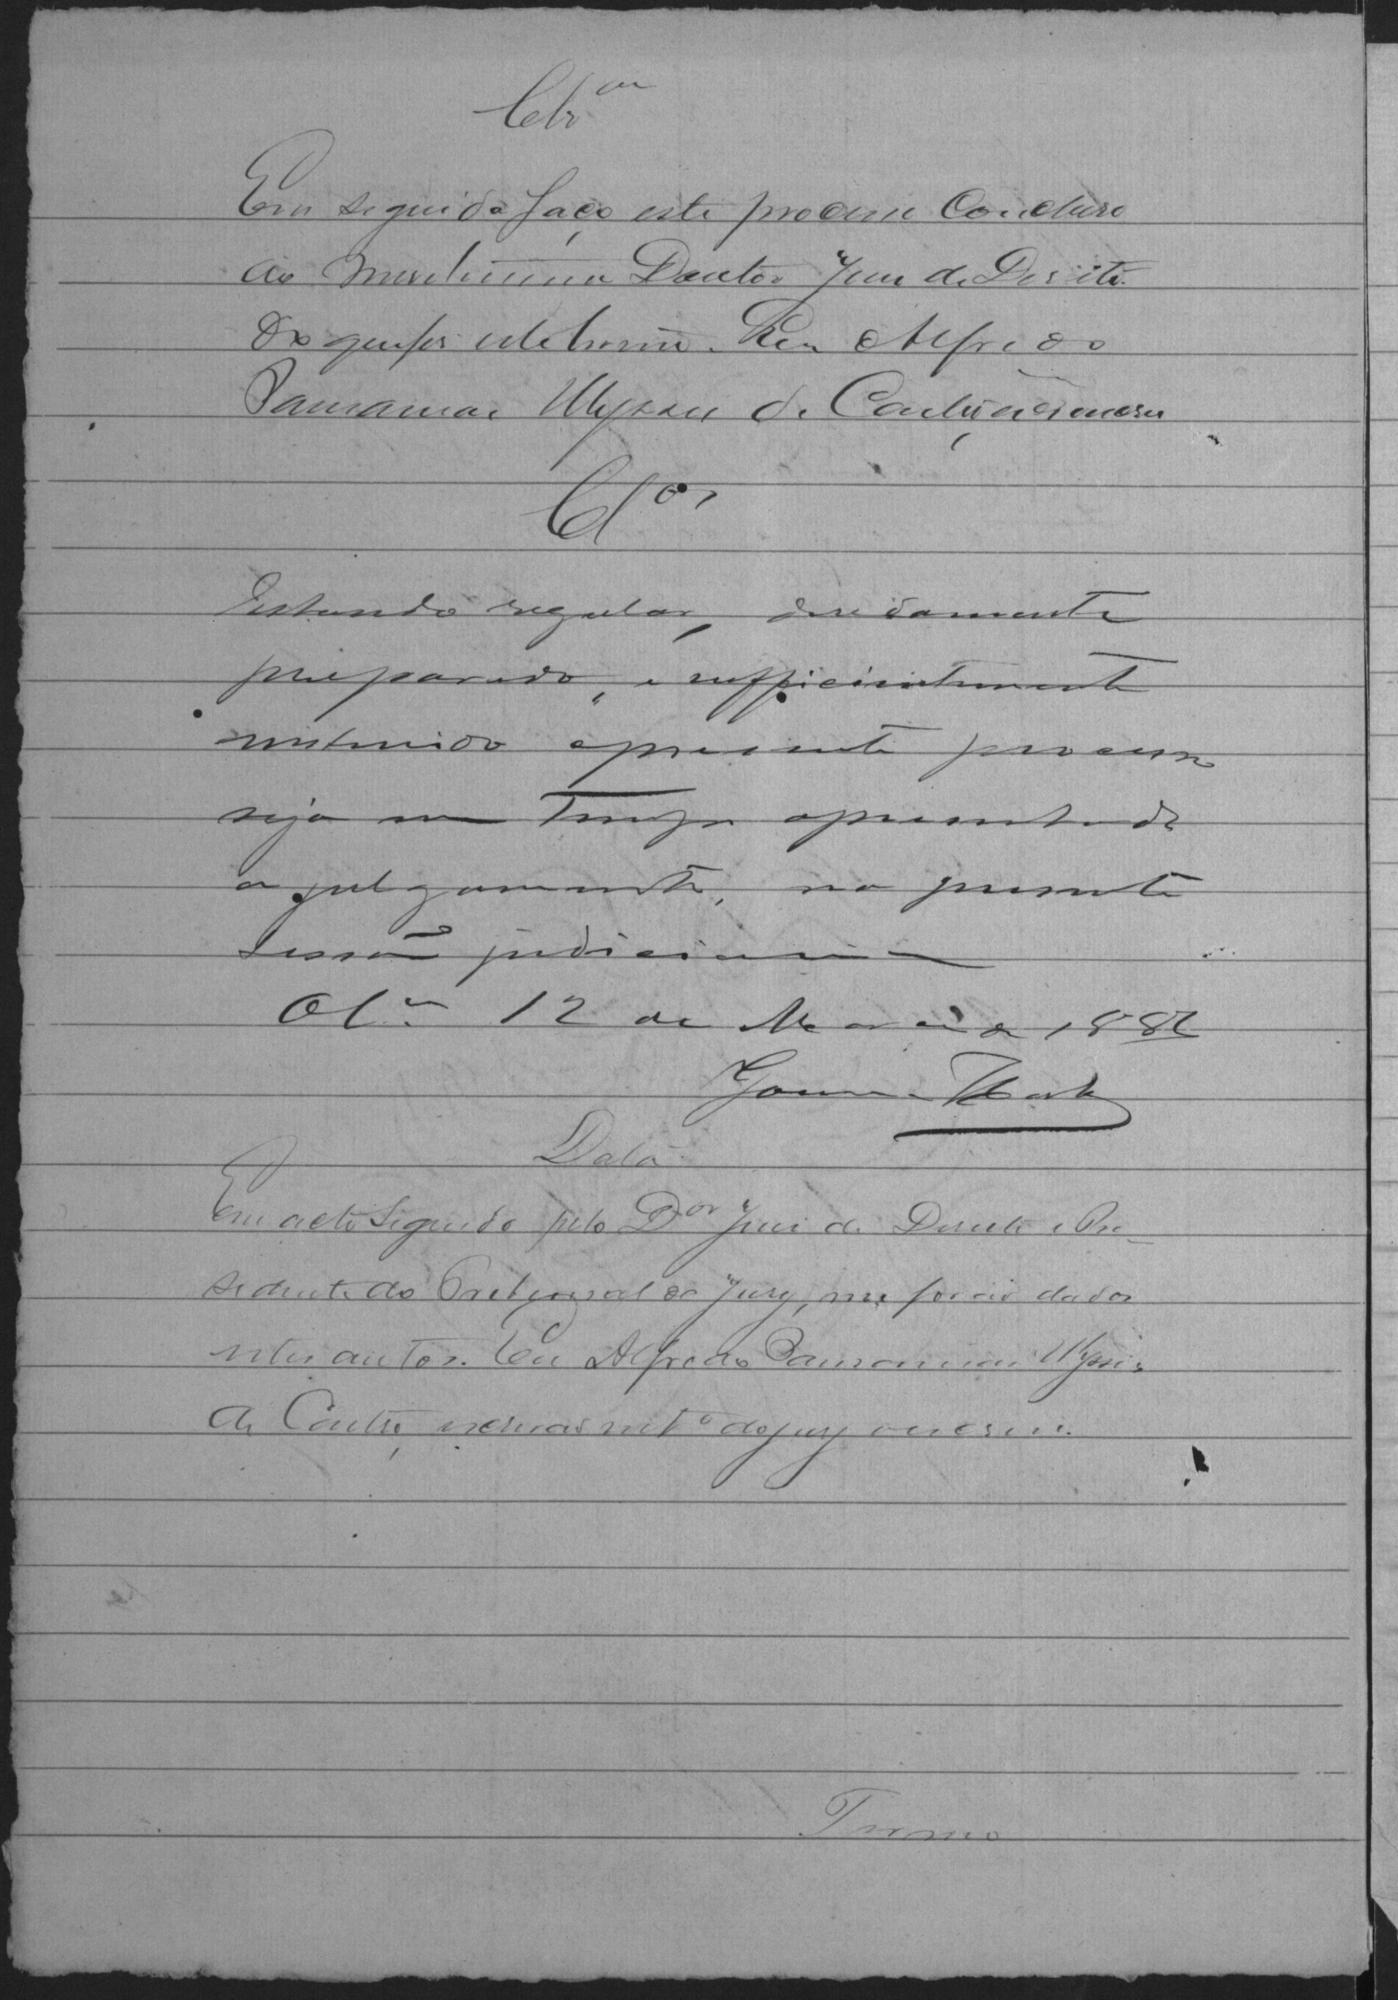 Clz.am
Em seguida faço este processo Concluso
ao Meretissimo Doutor Juiz de Direito
do que fiz este termo. Eu Alfredo
Pausanias Ulysses de Castro, escrevi
Cl.os
Estando regular, devidamente
preparado, e sufficientemente
instruido o presente processo
seja em tempo apresentado
a julgamento, na presente
sessão judiciaria
12 de Março de 1882
Data
Em acto seguido pelo Dor Juiz de Direito e Pre-
sidente do Tribunal do Jury, me forão dados
estes autos. Eu Alfredo Pausanias Ulysses
de Castro, escrivão int.o do jury o escrevi.
Termo